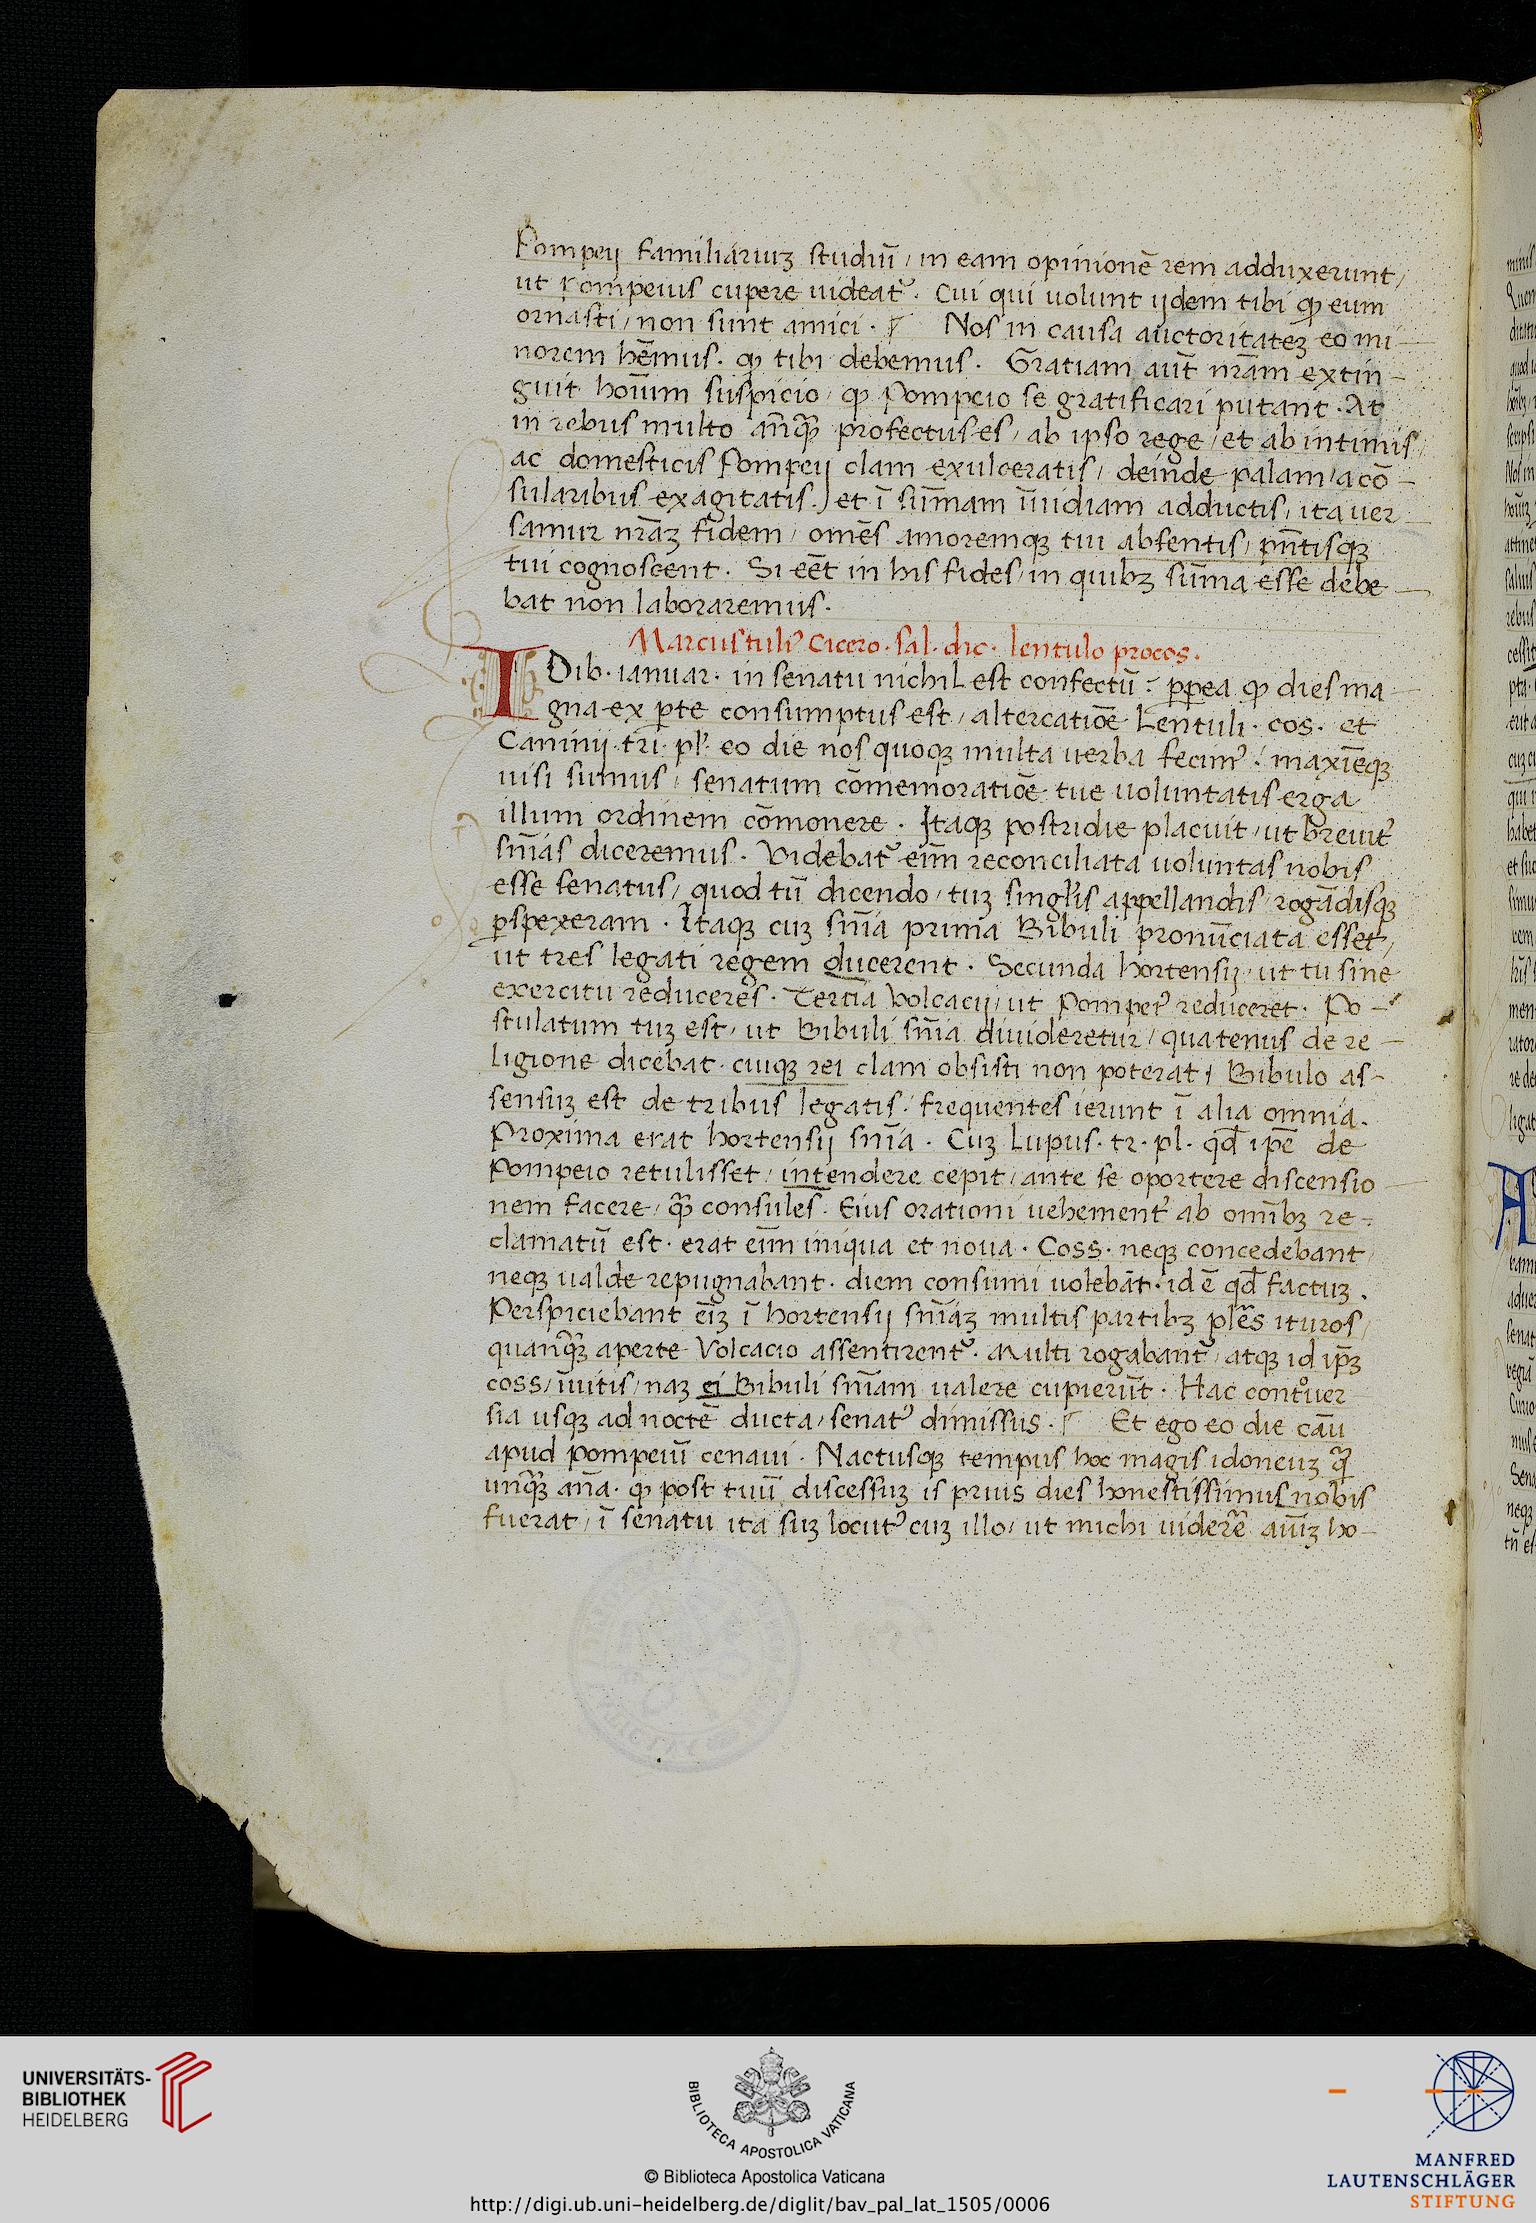 Pompeij familiariuꝫ studiū / in eam opinionē rem adduxerunt /
ut Pompeius cupere uideat᷑ . Cui qui uolunt ijdem tibi ꝙ eum
ornasti / non sunt amici . Nos in causa auctoritateꝫ eo mi-
norem hēmus . ꝙ tibi debemus . Gratiam aūt nr̄am extin-
guit hoīum suspicio / ꝙ Pompeio se gratificari putant . At
in rebus multo an̄qꝫ profectus es / ab ipso rege / et ab intimis /
ac domesticis Pompeij clam exulceratis / deinde palam / a cō-
sularibus exagitatis . et ī sūmam īuidiam adductis / ita uer-
samur nr̄aꝫ fidem / omēs amoremqꝫ tui absentis / pn̄tisqꝫ
tui cognoscent . Si eēt in his fides / in quibꝫ sūma esse debe-
bat non laboraremus .
Marcustuliꝰ Cicero . sal . dic . lentulo procos .
IDib . ianuar . in senatu nichil est confectū : ꝓpea ꝙ dies ma-
gna ex ꝑte consumptus est / altercatiōe Lentuli . cos . et
Caninij . tri . pl . eo die nos quoqꝫ multa uerba fecimꝰ : maxīeqꝫ
uisi sumus / senatum cōmemoratiōe tue uoluntatis erga
illum ordinem cōmonere . Itaqꝫ postridie placuit / ut breuit̓
sn̄ias diceremus . Videbat᷑ eīm reconciliata uoluntas nobis
esse senatus / quod tū dicendo / tuꝫ singl̓is appellandis / rogādisqꝫ
ꝑspexeram . Itaqꝫ cuꝫ sn̄ia prima Bibuli pronūciata esset /
ut tres legati regem ducerent . Secunda hortensij / ut tu sine
exercitu reduceres . Tertia Volcacij / ut Pompeꝰ reduceret . Po-
stulatum tuꝫ est / ut Bibuli sn̄ia diuideretur / quatenus de re-
ligione dicebat . cuiqꝫ rei clam obsisti non poterat / Bibulo as-
sensuꝫ est de tribus legatis / frequentes ierunt ī alia omnia .
Proxima erat hortensij sn̄ia . Cuꝫ Lupus . tr . pl . qd̄ ip̄e de
Pompeio retulisset / intendere cepit / ante se oportere discensio-
nem facere / qꝫ consules . Eius orationi uehement̓ ab om̄ibꝫ re-
clamatū est . erat eīm iniqua et noua . Coss . neqꝫ concedebant
neqꝫ ualde repugnabant . diem consumi uolebāt . id ē qd̄ factuꝫ .
Perspiciebant eīꝫ ī hortensij sn̄iaꝫ multis partibꝫ pl̄es ituros /
quanqꝫ aperte Volcacio assentirent᷑ . Multi rogabant᷑ / atqꝫ id ip̄ꝫ
coss / īuitis / naꝫ ei Bibuli sn̄iam ualere cupierūt . Hac contouer-
sia usqꝫ ad noctē ducta / senatꝰ dimissus . Et ego eo die cāu
apud pompeiū cenaui . Nactusqꝫ tempus hoc magis idoneuꝫ qꝫ
unqꝫ an̄a . ꝙ post tuū discessuꝫ is prius dies honestissimus nobis
fuerat / ī senatu ita suꝫ locutꝰ cuꝫ illo / ut michi uiderer̄ aīuꝫ ho-
UNIVERSITÄTS-
BIBLIOTHEK
HEIDELBERG
BIBLIOTECA APOSTOLICA VATICANA
© Biblioteca Apostolica Vaticana
http://digi.ub.uni-heidelberg.de/diglit/bav_pal_lat_1505/0006
MANFRED
LAUTENSCHLÄGER
STIFTUNG